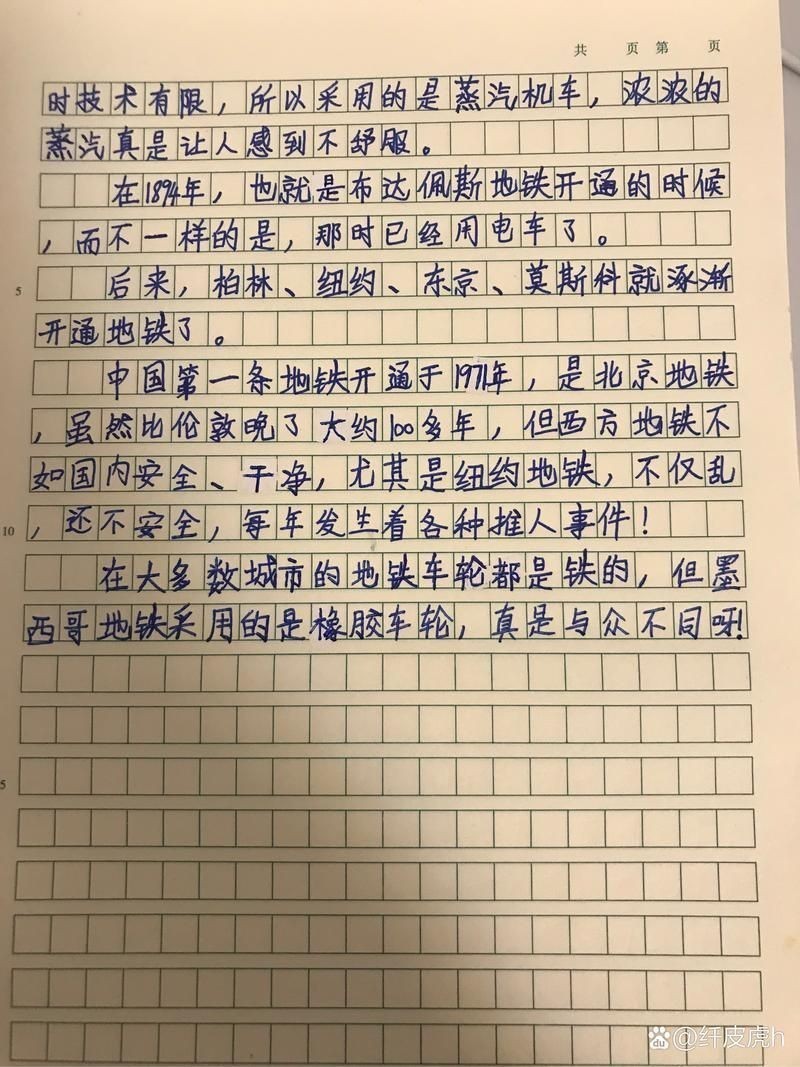 共 页 第 页
时技术有限，所以采用的是蒸汽机车，浓浓的
蒸汽真是让人感到不舒服。
在1894年，也就是布达佩斯地铁开通的时候
，而不一样的是，那时已经用电车了。
5 后来，柏林、纽约、东京、莫斯科就逐渐
开通地铁了。
中国第一条地铁开通于1971年，是北京地铁
，虽然比伦敦晚了大约100多年，但西方地铁不
如国内安全、干净，尤其是纽约地铁，不仅乱
10 ，还不安全，每年发生着各种推人事件！
在大多数城市的地铁车轮都是铁的，但墨
西哥地铁采用的是橡胶车轮，真是与众不同呀！
5
Baidu @纤皮虎h